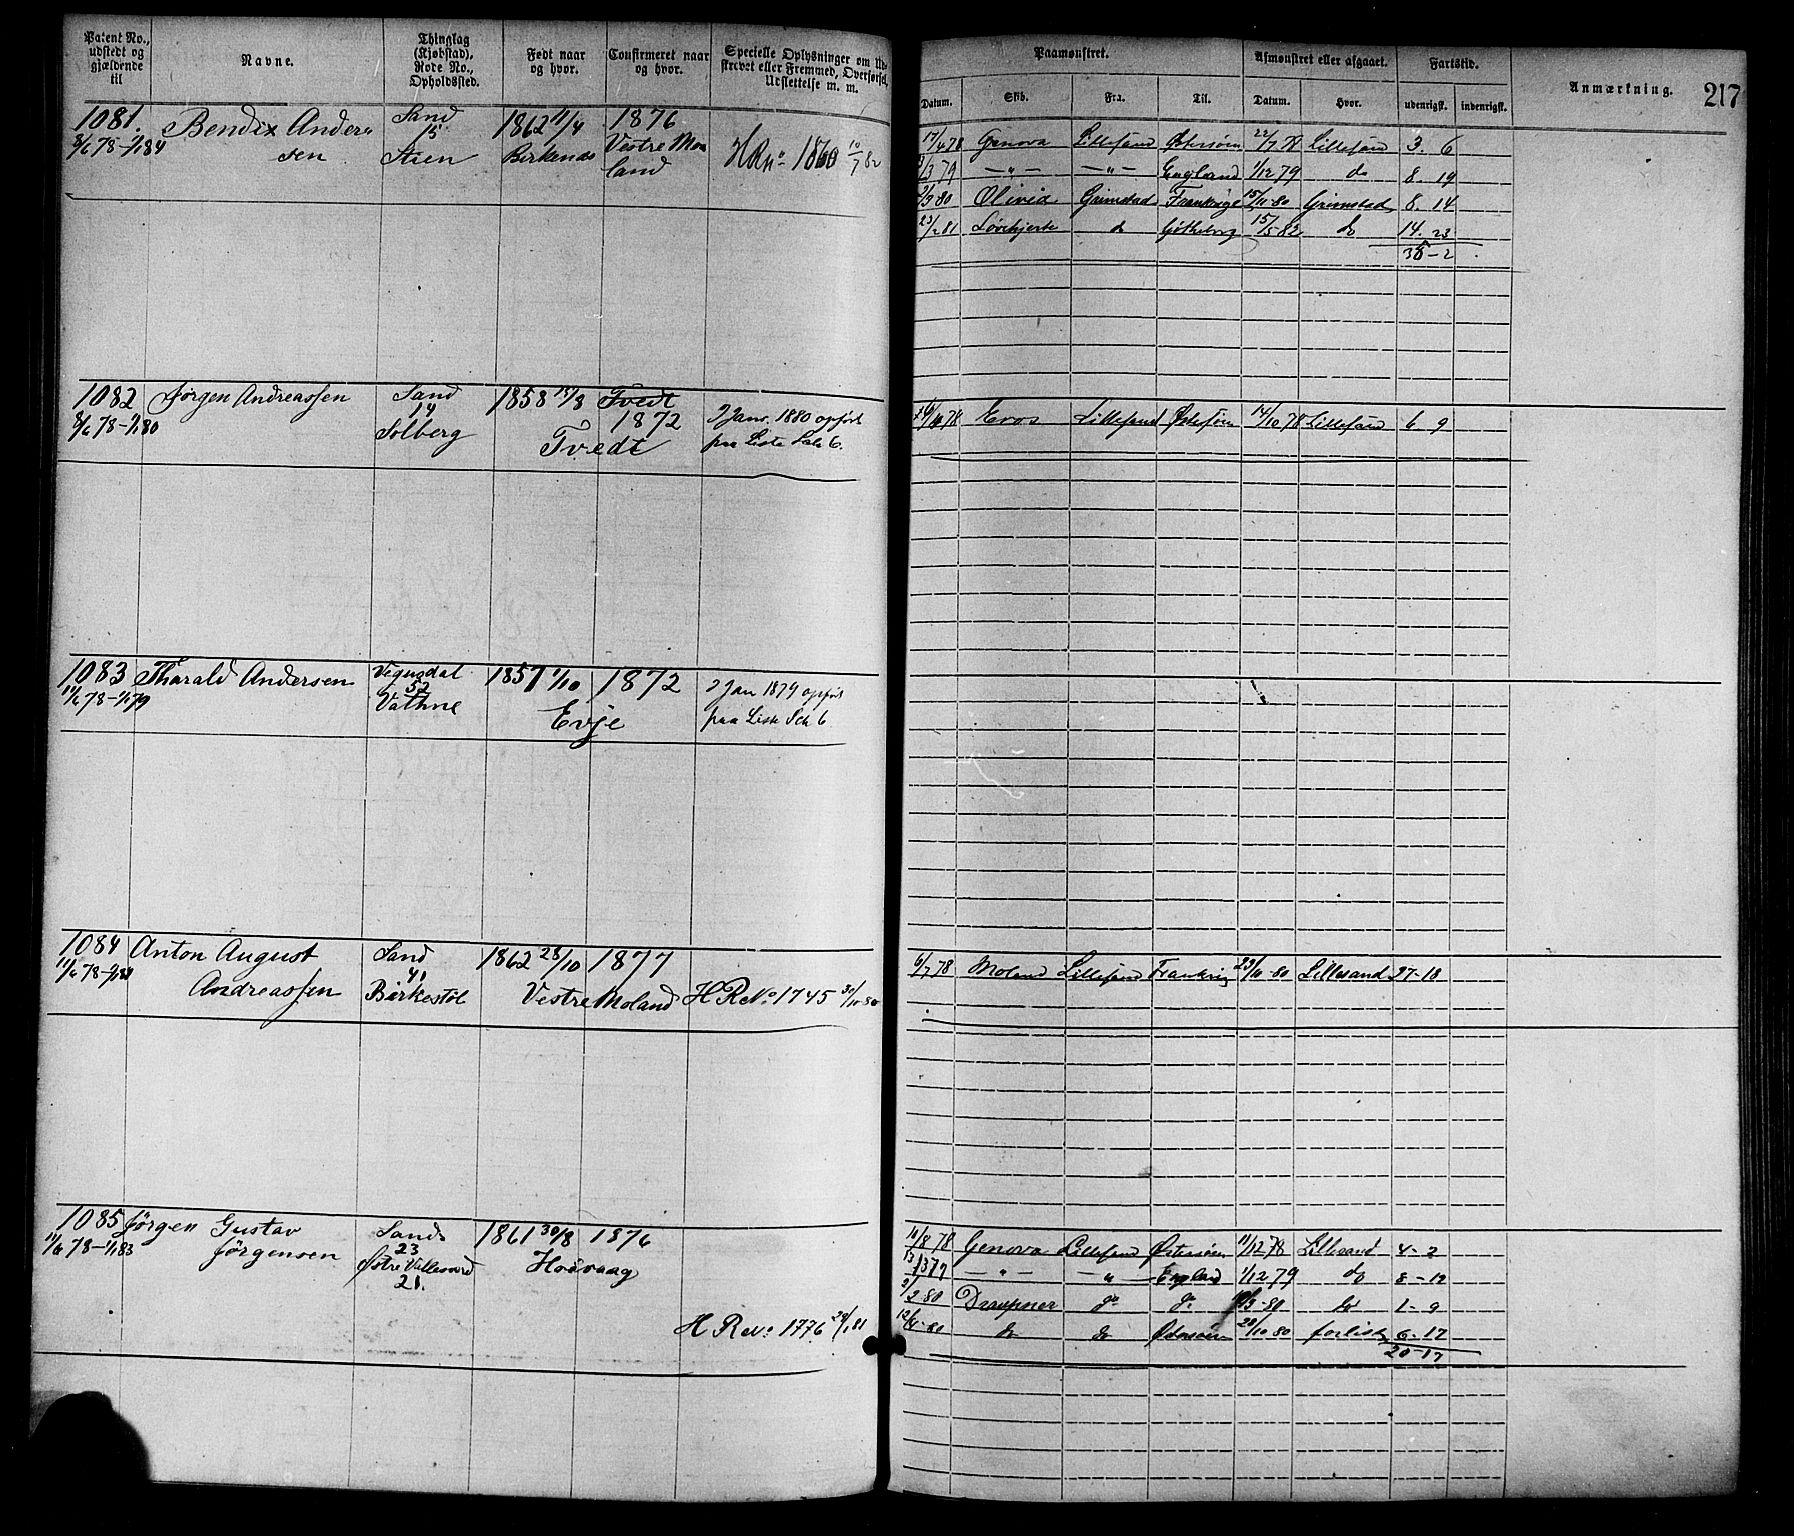 Patent No., udstedt og gjældende til
Navne.
Thinglag (Kjøbstad), Rode No., Opholdssted.
Født naar og hvor.
Confirmeret naar og hvor.
Specielle Oplysninger om Ud-
skrevet eller Fremmed, Overførsel,
Udslettelse m. m.
Paamønstret.
Afmønstret eller afgaaet.
Fartstid.
Anmærkning.
217
Datum. Skib. Fra. Til. Datum. Hvor. udenrigsk. indenrigsk.
1081. BendixAnder Sand 1862 11/4 1876
8/6 78-1/1 84 sen 15 Stien Birkenæs Vestre Mo
land H R No 1860 10/7 82
17/4 78 Genova Lillesand Østersøen 22/7 78 Lillesand 3. 6
3/3 79 — " — — " — England 1/12 79 do 8. 19
80 Olivia Grimstad Frankrige 15/11 80 Grimstad 8. 14
23/2 81 Løvehjerte do Gøtheborg 15/5 82 do 14. 23
35-2
1082 Jørgen Andreassen Sand 1858 Tvedt
8/6 78-1/1 80 14 1872 2 Janr. 1880 opført
Solberg Tvedt paa Liste Lab 6.
78 Eros Lillesand Østersøen 14/10 78 Lillesand 6 9
1083 Tharald Andersen Vegusdal 1857 1/10 1872
11/6 78-1/1 79 52 2 Jan 1879 opført
Vathne Evje paa Liste 6
1084 Anton August Sand 1862 28/10 1877
11/6 78- 41
Andreassen Birkestöl Vestre Moland H R No 1745 30/10 80
6/7 78 Moland Lillesand Frankrig 80 Lillesand 27-18
1085 Jørgen Gustav Sand 1861 30/8 1876
11/6 78-1/1 83 Jørgensen 23
Østre Vallesværd Høivaag
21.
H R No 1776 81
10/8 78 Genova Lillesand Østersøen 11/12 78 Lillesand 4-2
13/3 79 — " — — " England 1/12 79 do 8-19
2/2 80 Draupner do do 80 do 1-9
80 do do Østersøen 28/10 80 forlist 6-17
20-17